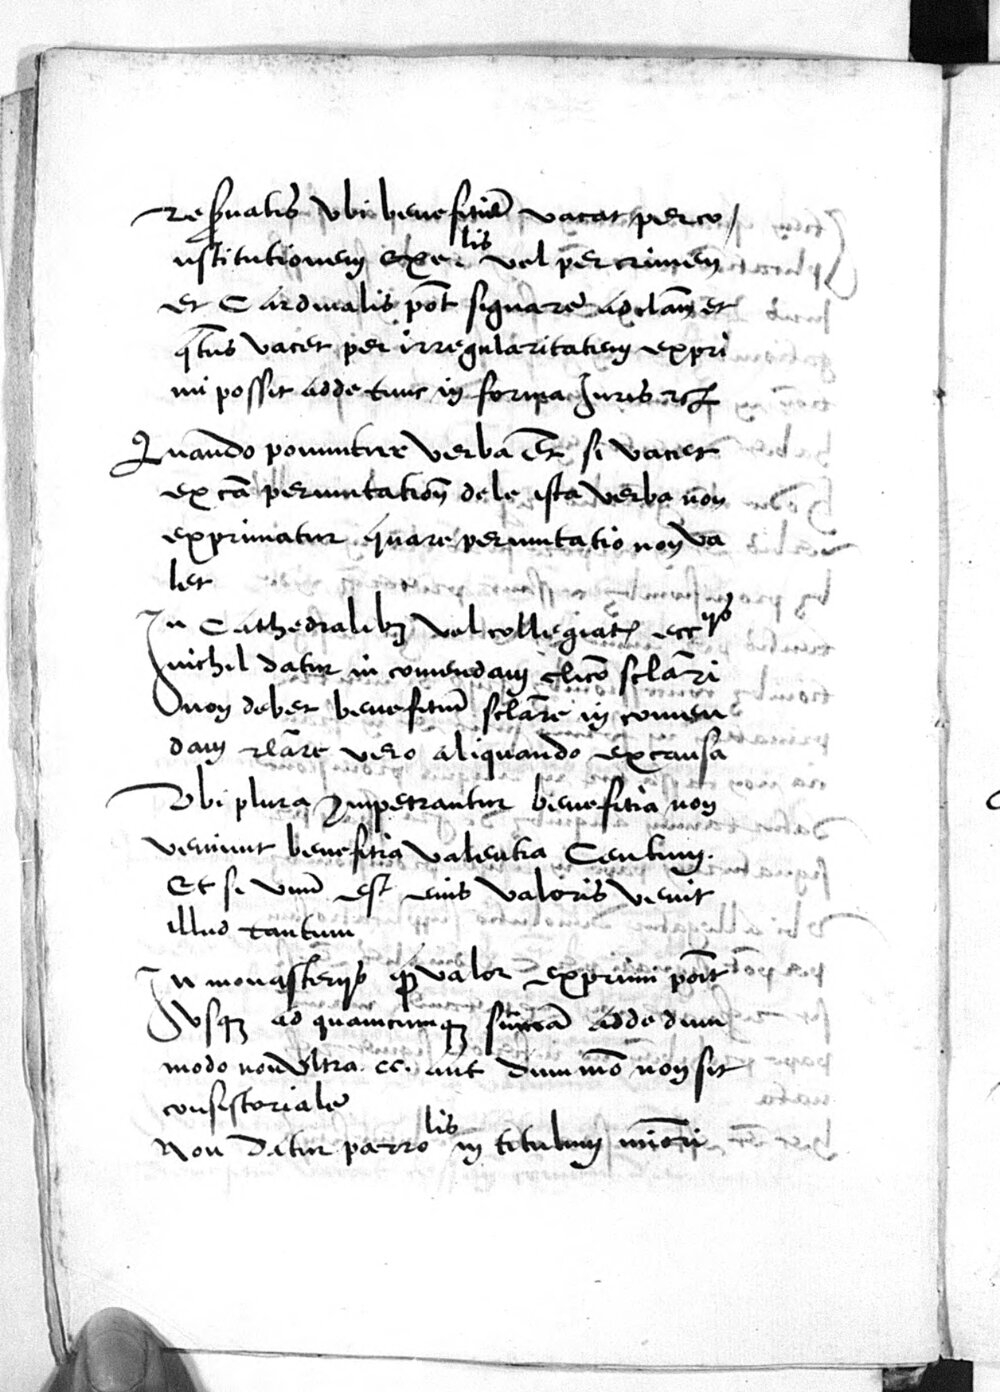 reservatis Ubi benefitiū vacat per co/
nstitutionem exe lis vel per crimen
et Cardinalis pōt signare ad clam et
qtus vacet per irregularitatem expri
mi possit adde tunc in forma Juris etc
Quando ponuntur verba Et si vacet
ex cā permutationī dele ista verba non
exprimatur quare permutatio non va
let
In Cathedralibꝫ vel collegiat ecc ijs
nichil datur in comendam clico sclāri
non debet benefitiū sclāre in comen
dam rlāre vero aliquando ex causa
Ubi plura ympetrantur benefitia non
veniunt benefitia valentia Centum.
Et si unū est eius valoris venit
illud tantum
In monasterijs qꝫ valor exprimi pōit
Usqꝫ ad quamcumqꝫ sūmā adde dum
modo non Ultra .cc. aut dummō non sit
consistoriale
Non datur parro lis in titulum miōri